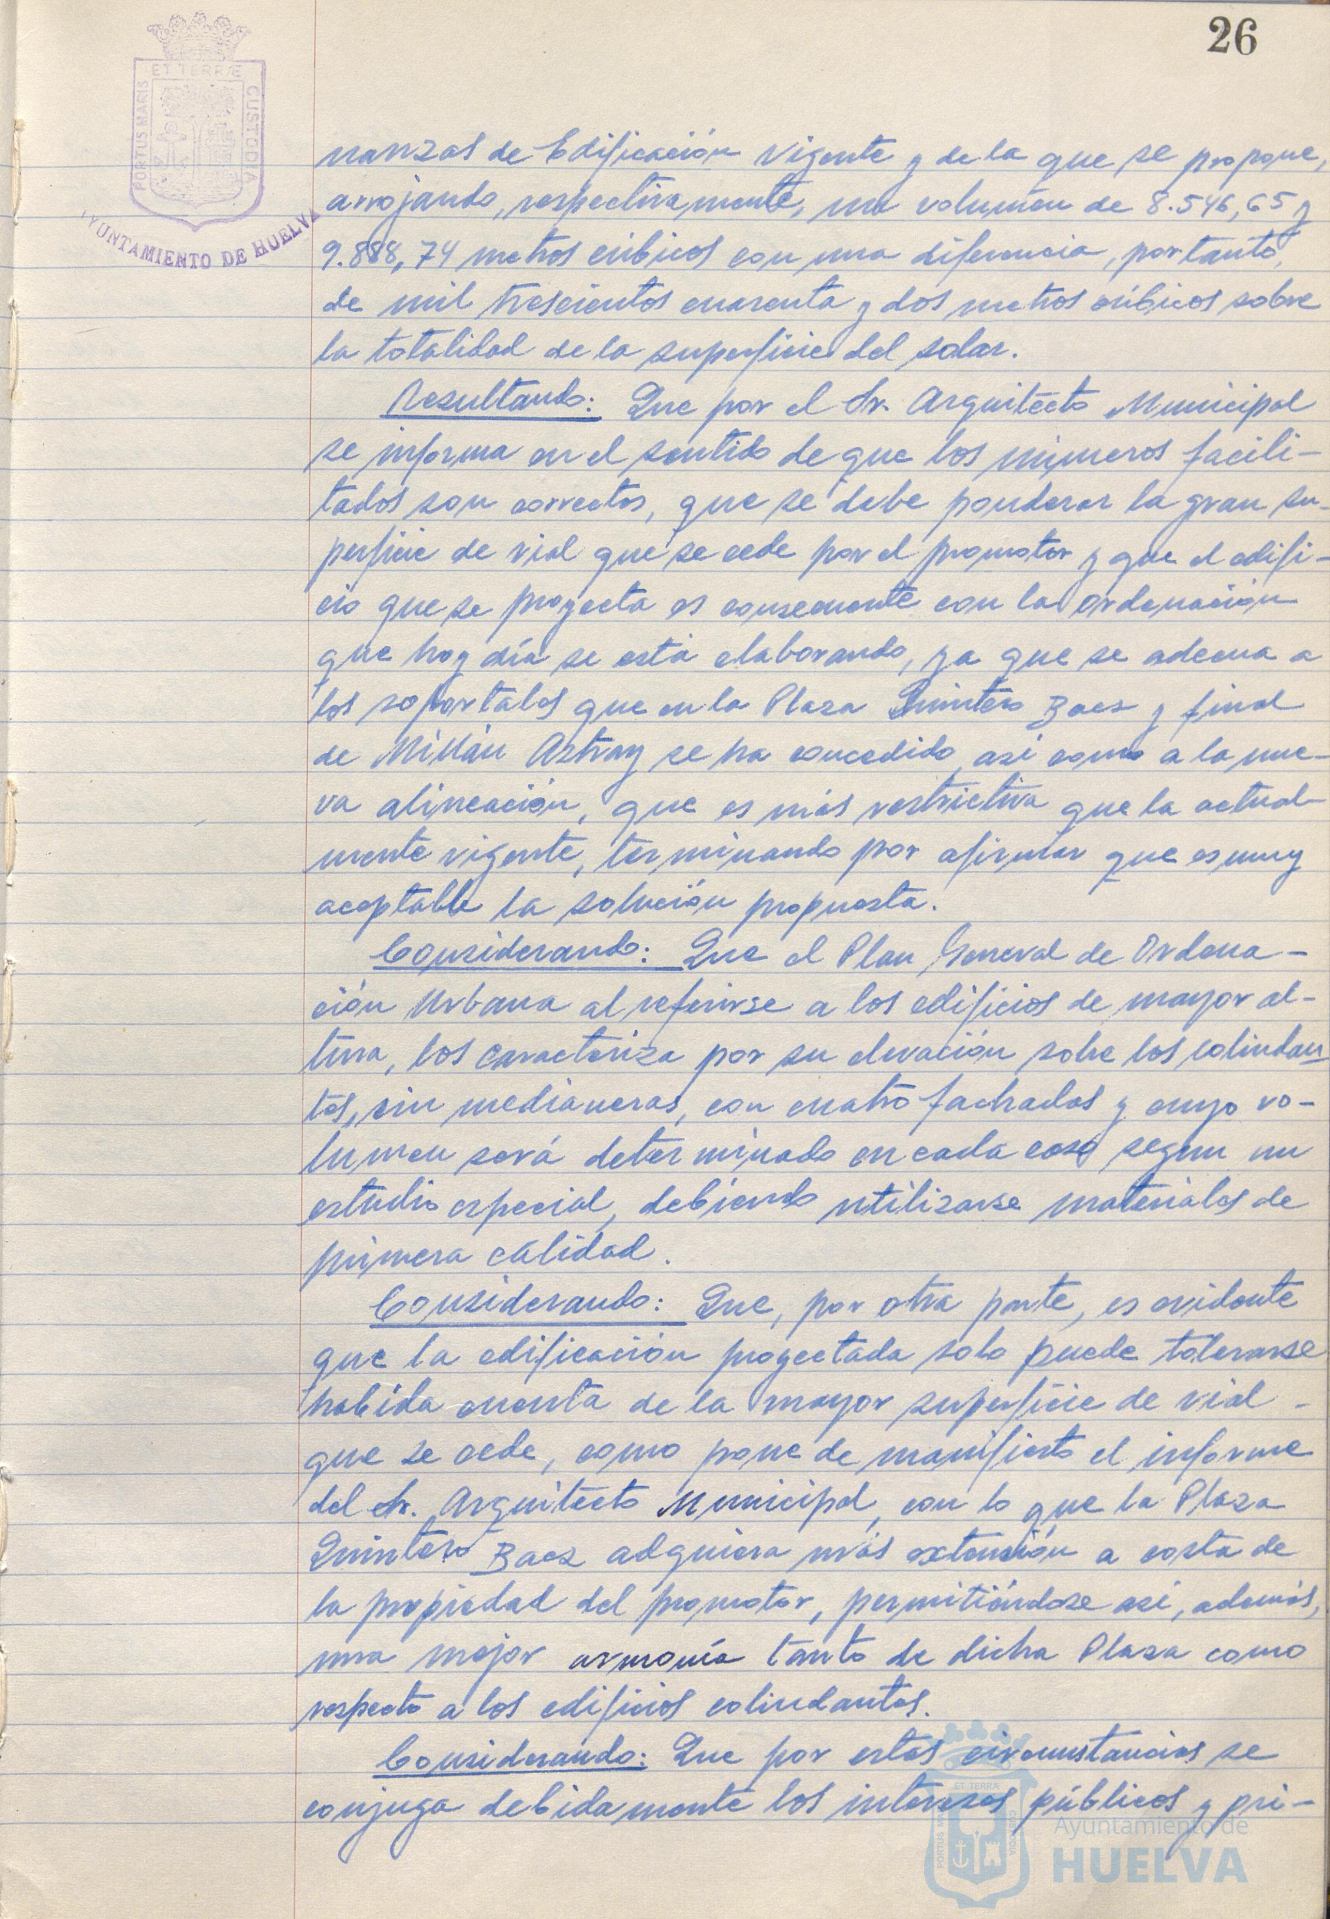 26
ET TERRÆ
PORTUS MARIS
CUSTODIA
AYUNTAMIENTO DE HUELVA
nanzas de Edificación vigente y de la que se propone,
arrojando, respectivamente, un volumen de 8.546,65 y
9.888,74 metros cúbicos con una diferencia, por tanto,
de mil trescientos cuarenta y dos metros cúbicos sobre
la totalidad de la superficie del solar.
Resultando: Que por el Sr. Arquitecto Municipal
se informa en el sentido de que los números facili-
tados son correctos, que se debe ponderar la gran su-
perficie de vial que se cede por el promotor y que el edifi-
cio que se proyecta es consecuente con la ordenación
que hoy día se está elaborando, ya que se adecua a
los soportales que en la Plaza Quintero Baez y final
de Millán Astray se ha concedido, así como a la nue-
va alineación, que es más restrictiva que la actual-
mente vigente, terminando por afirmar que es muy
aceptable la solución propuesta.
Considerando: Que el Plan General de Ordena-
ción Urbana al referirse a los edificios de mayor al-
tura, los caracteriza por su elevación sobre los colindan
tes, sin medianeras, con cuatro fachadas y cuyo vo-
lumen será determinado en cada caso segun un
estudio especial, debiendo utilizarse materiales de
primera calidad.
Considerando: Que, por otra parte, es evidente
que la edificación proyectada solo puede tolerarse
habida cuenta de la mayor superficie de vial -
que se cede, como pone de manifiesto el informe
del Sr. Arquitecto Municipal, con lo que la Plaza
Quintero Baez adquiera más extensión a costa de
la propiedad del promotor, permitiéndose así, además,
una mejor armonía tanto de dicha Plaza como
respecto a los edificios colindantes.
Considerando: Que por estas circunstancias se
conjuga debidamente los intereses públicos y pri-
ET TERRA
PORTUS MARIS
CUSTODIA
Ayuntamiento de
HUELVA